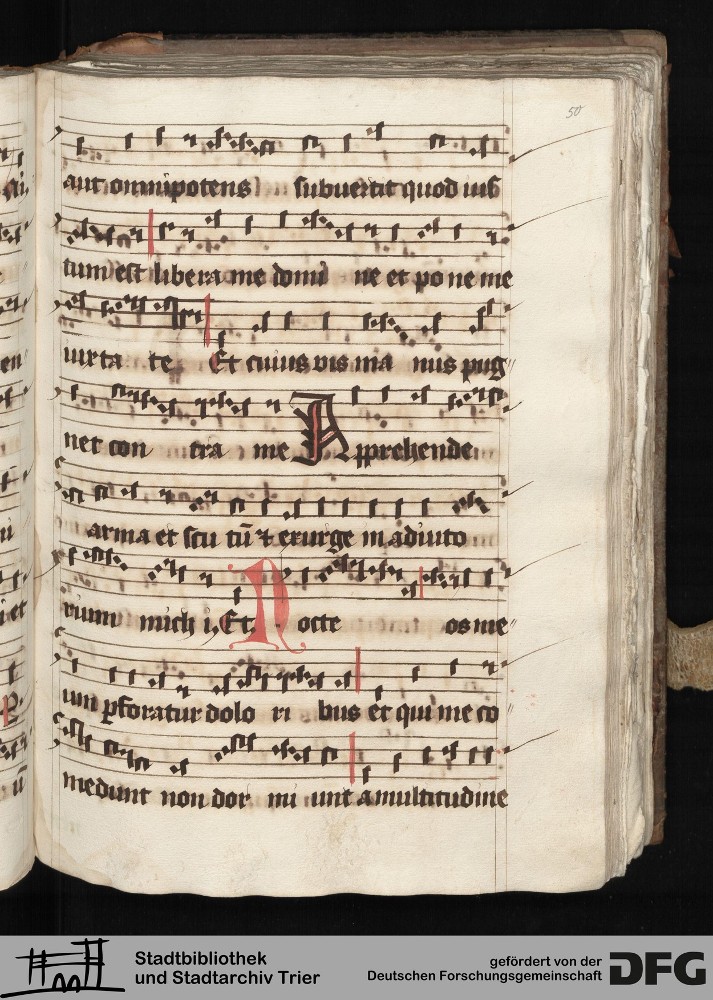 50
aut omnipotens subuertit quod ius
tum est libera me domi ne et po ne me
iuxta te Et cuius vis ma nus pug
net con tra me Apprehende
arma et scu tū et exurge in adiuto
rium mich i. Et Nocte os me
um pforatur dolo ri bus et qui me co
medunt non dor mi unt a multitudine
Stadtbibliothek
und Stadtarchiv Trier
gefördert von der
Deutschen Forschungsgemeinschaft
DFG